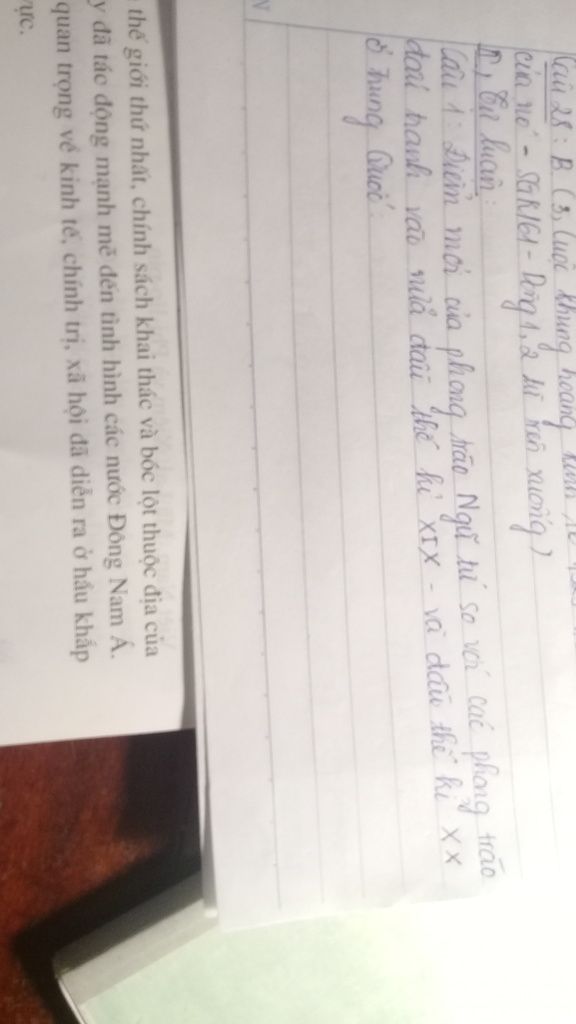 Câu 28: B (3, Cuộc khủng hoảng kinh tế
của nó - SGK/61 - Dòng 1, 2 từ trên xuống)
II, Tự luận:
Câu 1: Điểm mới của phong trào Ngũ tứ so với các phong trào
đấu tranh vào nửa đầu thế kỉ XIX - và đầu thế kỉ XX
ở Trung Quốc.
thế giới thứ nhất, chính sách khai thác và bóc lột thuộc địa của
y đã tác động mạnh mẽ đến tình hình các nước Đông Nam Á.
quan trọng về kinh tế, chính trị, xã hội đã diễn ra ở hầu khắp
vực.